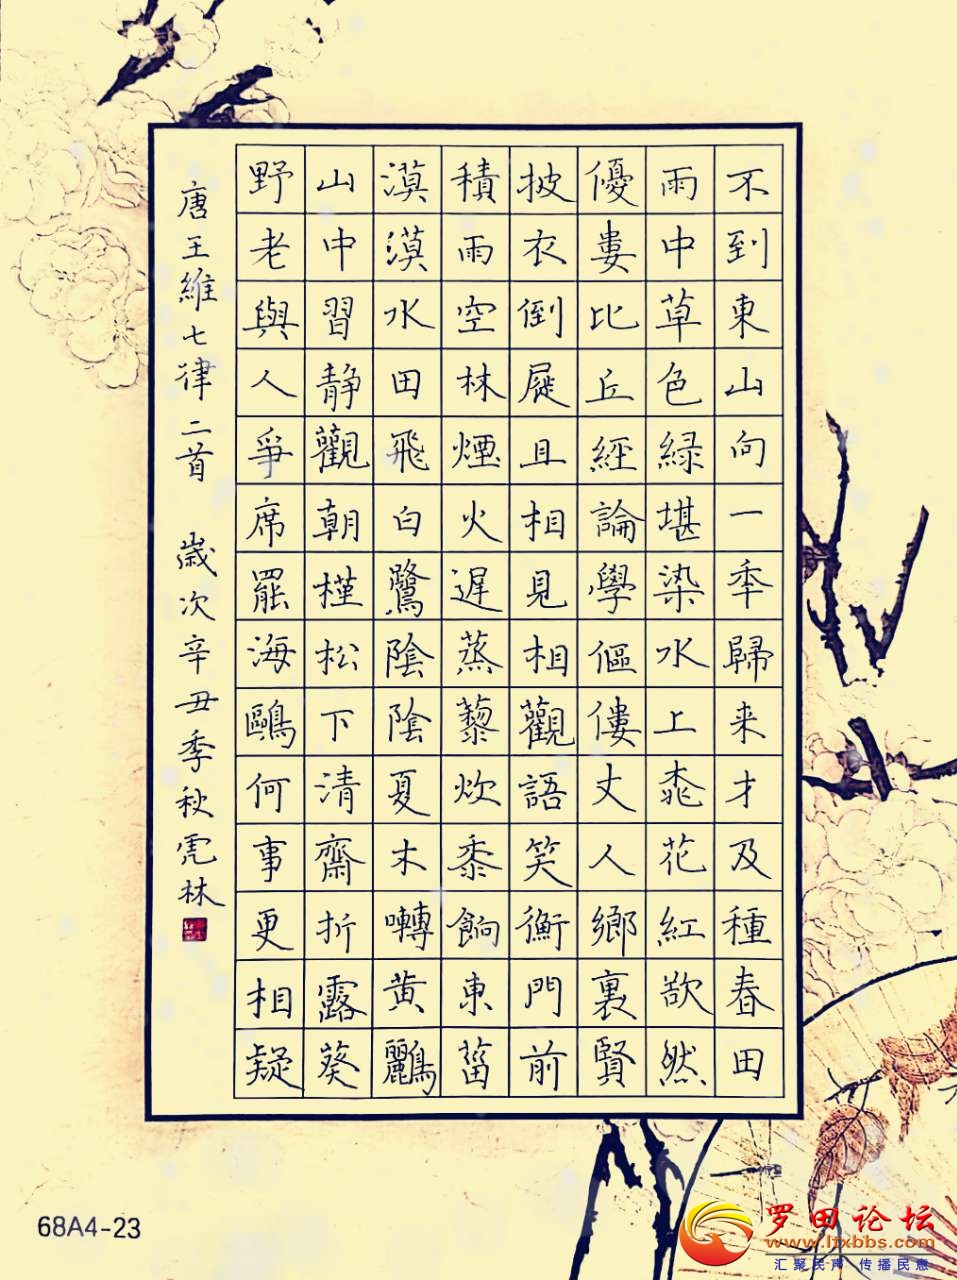 不到東山向一秊歸来才及種春田
雨中草色緑堪染水上桃花紅欲然
優婁比丘經論學傴僂丈人鄉裏賢
披衣倒屣且相見相觀語笑衡門前
積雨空林煙火遲蒸藜炊黍餉東菑
漠漠水田飛白鷺陰陰夏木囀黄鸝
山中習静觀朝槿松下清齋折露葵
野老與人爭席罷海鷗何事更相疑
唐王維七律二首 歲次辛丑季秋虎林
68A4-23
罗田论坛
www.ltxbbs.com
汇聚民声 传播民意